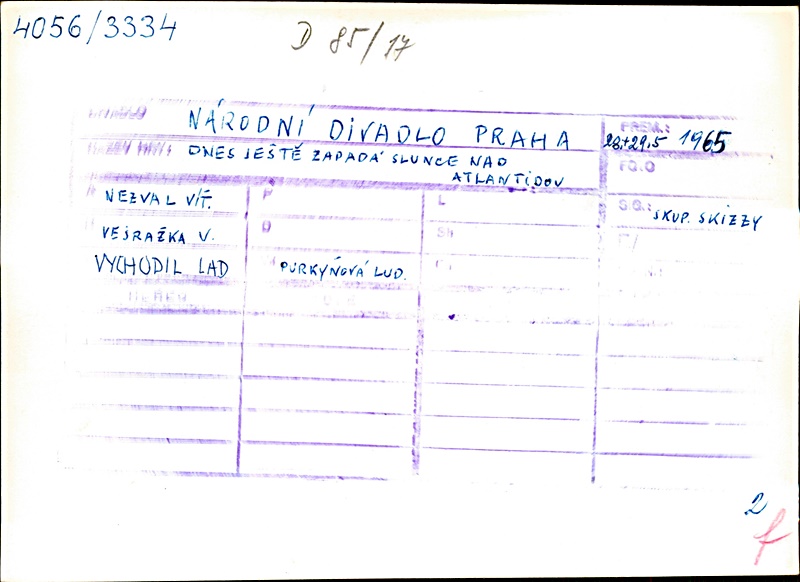 4056/3334
D 85/17
NÁRODNÍ DIVADLO PRAHA
PREM.: 28+29.5 1965
DNES JEŠTĚ ZAPADÁ SLUNCE NAD
ATLANTIDOU
FO.O
NEZVAL VÍT.
P
L
S.G.: SKUP. SKIZZY
VEJRAŽKA V.
O
Sh
VYCHODIL LAD
PURKYŇOVÁ LUD.
HEREC
2
f